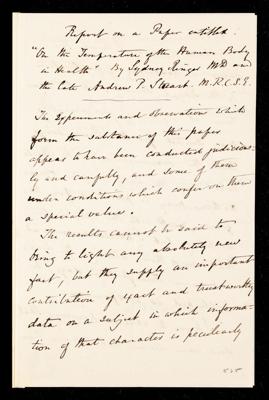 Report on a Paper entitled
"On the Temperature of the Human Body
in Health" By Sydney Ringer M.D and
the late Andrew P. Stewart. M.R.C.S.E.
The Experiments and Observations which
form the substance of this paper
appear to have been conducted judicious-
ly and carefully, and some of them
under conditions which confer on them
a special value.
The results cannot be said to
bring to light any absolutely new
fact, but they supply an important
contribution of exact and trustworthy
data on a subject in which informa-
tion of that character is peculiarly